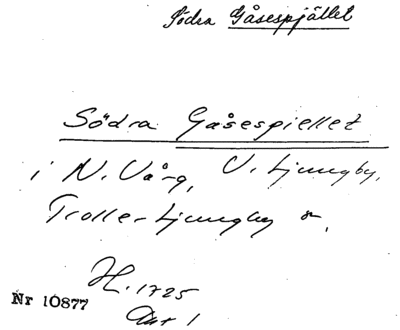 Södra Gåsespjället
Södra Gåsespiellet
i N. Vång, V. Ljungby,
Trolle-Ljungby
H. 1725
Nr 10877
Akt 1